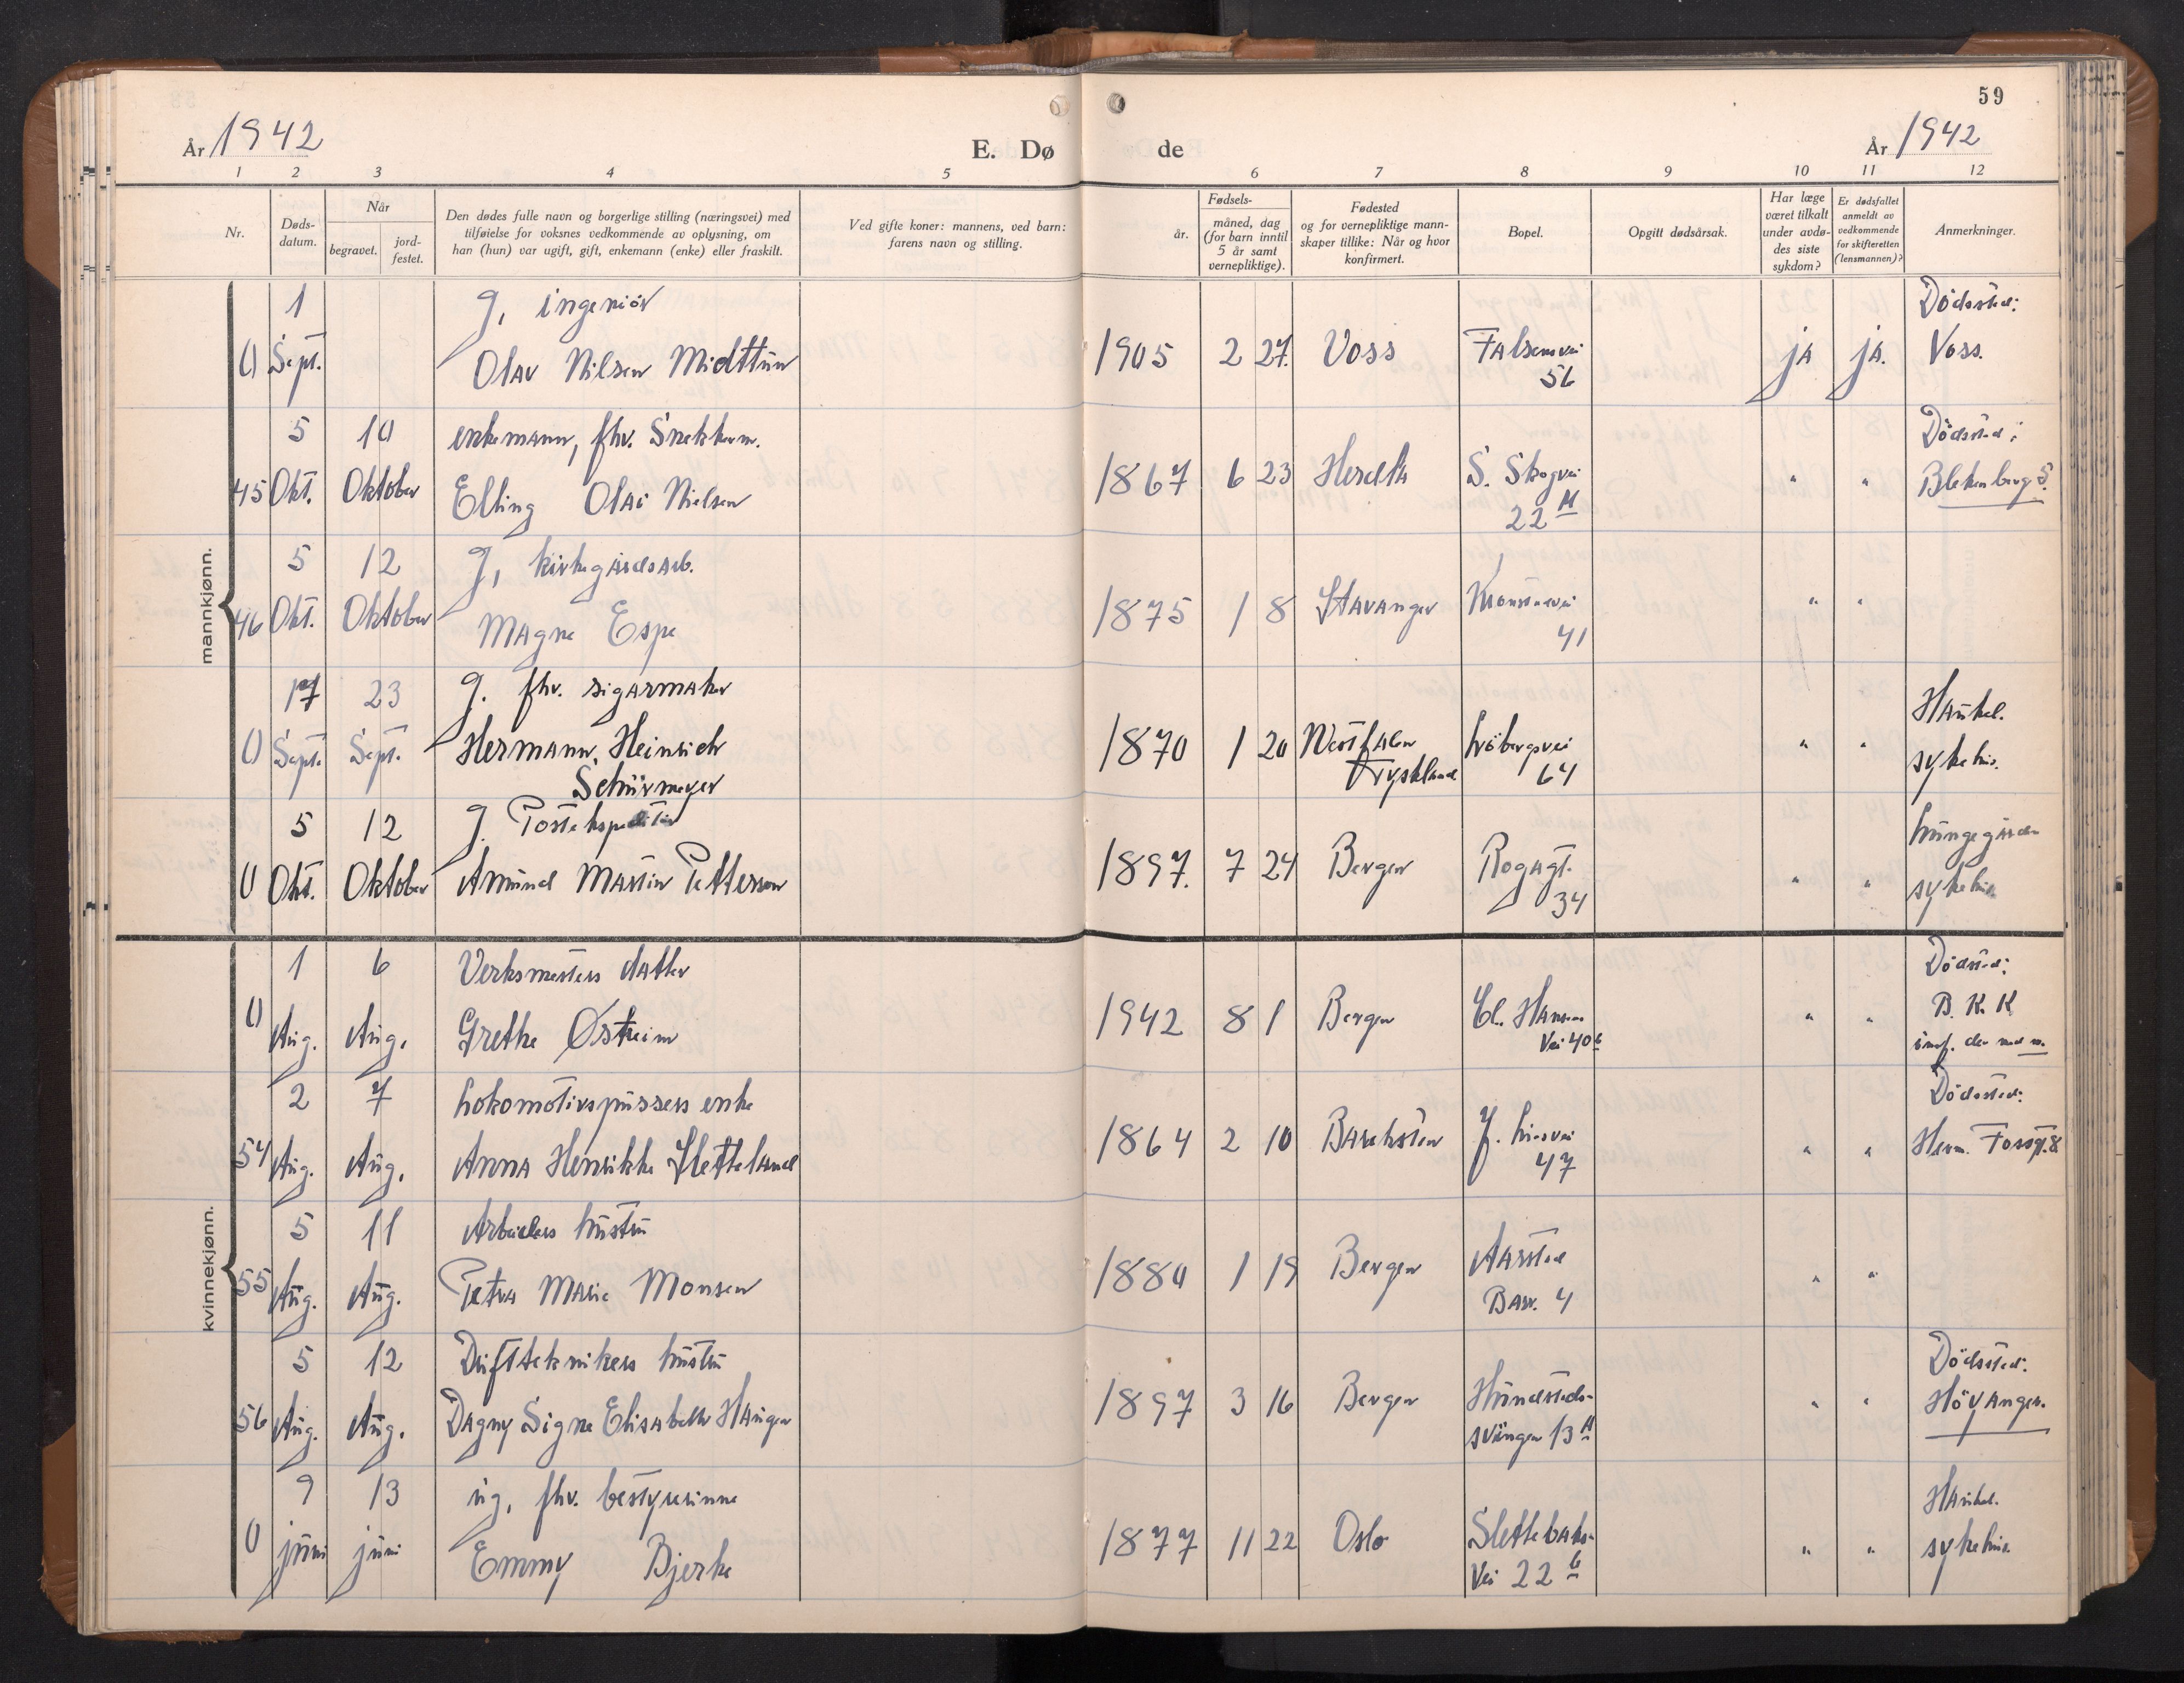 59
År 1942
E. Dø de
År 1942
1 2 3 4 5 6 7 8 9 10 11 12
Nr.
Døds-
datum.
Når
begravet.
jord-
festet.
Den dødes fulle navn og borgerlige stilling (næringsvei) med
tilføielse for voksnes vedkommende av oplysning, om
han (hun) var ugift, gift, enkemann (enke) eller fraskilt.
Ved gifte koner: mannens, ved barn:
farens navn og stilling.
Fødsels-
år.
måned, dag
(for barn inntil
5 år samt
vernepliktige).
Fødested
og for vernepliktige mann-
skaper tillike: Når og hvor
konfirmert.
Bopel.
Opgitt dødsårsak.
Har læge
været tilkalt
under avdø-
des siste
sykdom?
Er dødsfallet
anmeldt av
vedkommende
for skifteretten
(lensmannen)?
Anmerkninger.
mannkjønn.
1 g, ingeniör Dödssted:
0 Sept. Olav Nilsen Midttun 1905 2 27. Voss Falsensvei ja ja. Voss.
56
5 10 enkemann, fhv. Snekkerm. Dödssted:
45 Okt. Oktober Elling Olai Nielsen 1867 6 23 Herdla S. Skogvei " " Blekenberg 5.
22 A
5 12 g, kirkegårdsarb.
46 Okt. Oktober Magne Espe 1875 1 8 Stavanger " "
41
17 23 g. fhv. sigarmaker Haukel.
0 Sept. Sept. Hermann, Heinrich 1870 1 20 Westfalen Löbergsvei " " sykehus.
Schürmeyer Tyskland 64
5 12 g. Postekspeditör Lungegården
0 Okt. Oktober Amund Martin Pettersen 1897. 7 24 Bergen Rogagt. " " sykehus
34
kvinnekjønn.
1 6 Verksmesters datter Dödssted:
0 Aug. Aug. Grethe Østheim 1942 8 1 Bergen Cl. Hansens " " B. K. K
Vei 40 b
2 7 Lokomotivpussers enke Dödssted:
54 Aug. Aug. Anna Henrikke Sletteland 1864 2 10 J. Liesvei " " Herm. Fossgt. 8
47
5 11 Arbeiders hustru
55 Aug. Aug. Petra Marie Monsen 1880 1 19 Bergen Aarstad " "
Barr. 4
5 12 Driftteknikers hustru Dödssted:
56 Aug. Aug. Dagny Signe Elisabeth Haugen 1897 3 16 Bergen Hundsteds- " " Höyanger.
svingen 13 A
9 13 ug, fhv. bestyrerinne Haukel.
0 juni juni Emmy Bjerke 1877 11 22 Oslo Slettebaks- " " sykehus.
Vei 22 b